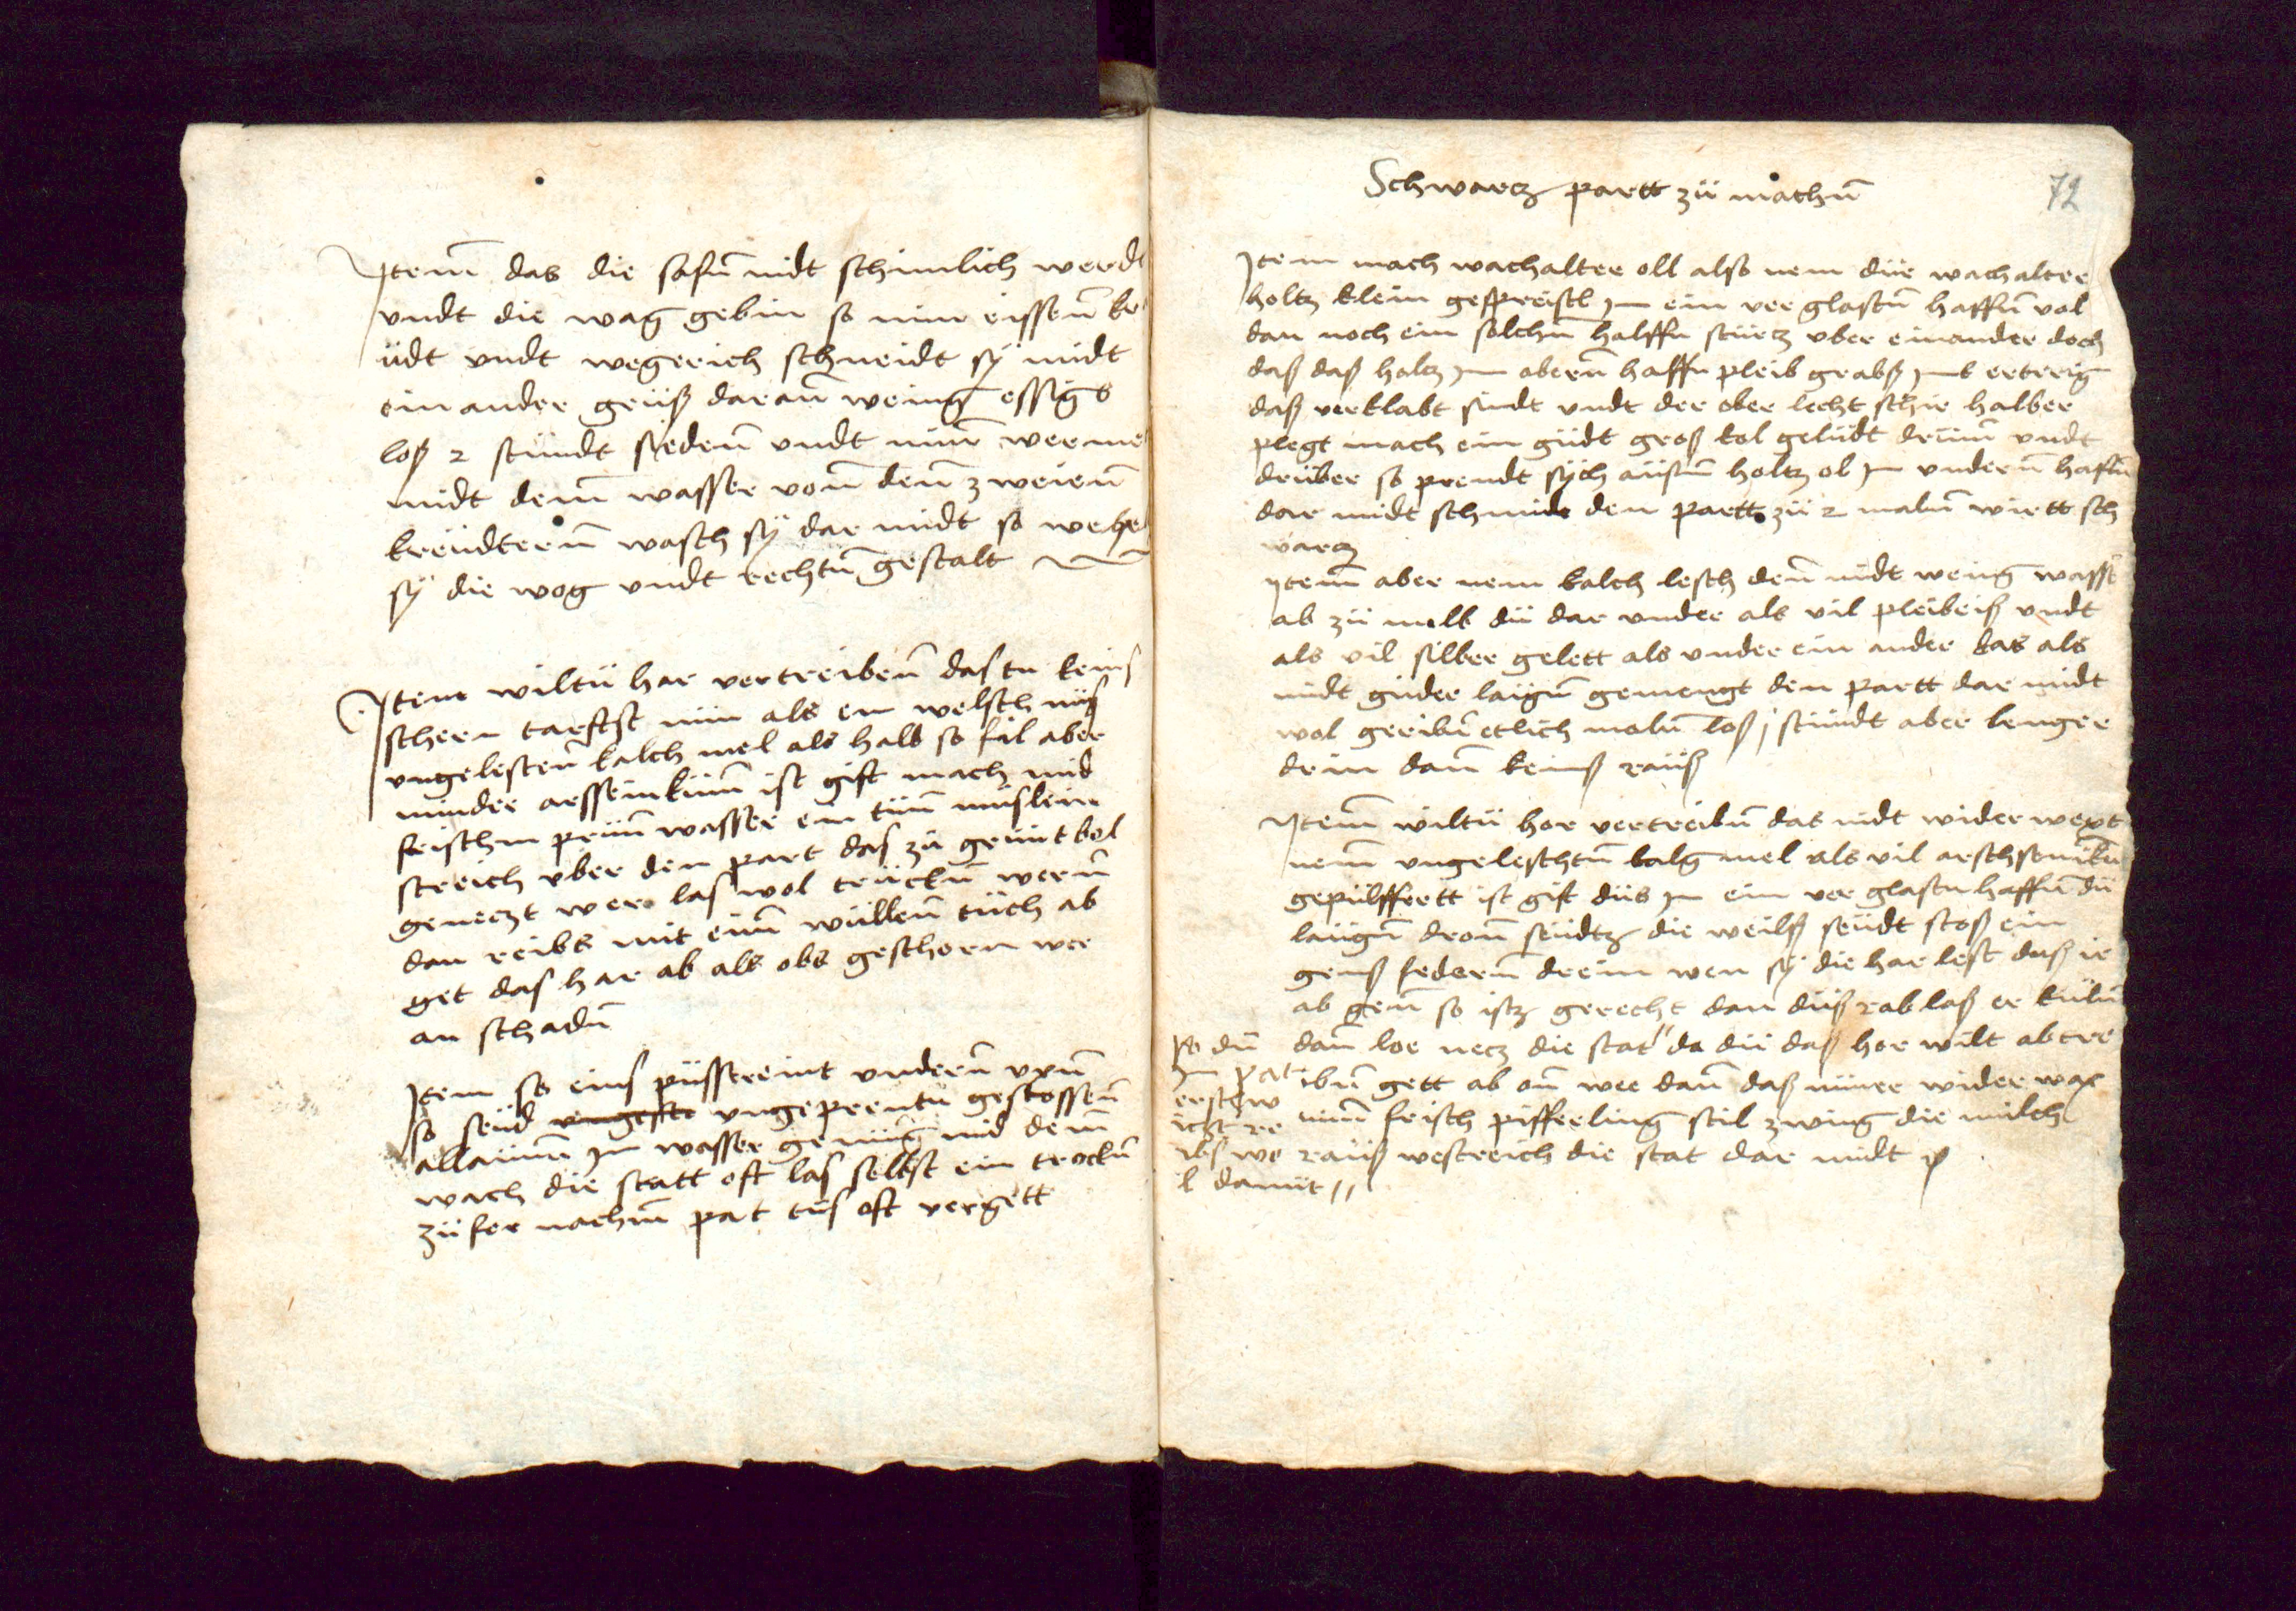 Item das die hosen nidt schimlich werdt
vndt die wag gebin so nim eissen kr
üdt vndt wegerich schneidt sÿ midt
ein ander geüß daran wenig essigs
loß 2 stündt siedenn vndt nim werme
midt dem wasser vonn denn zweienn
kreüdternn wasch sÿ dar midt so
sÿ die wog vndt rechtn gestalt
Item wiltü har vertreibenn das tu keins
schern tarfst nim als ein welsch nüs
vngelesten kalch mel als halb so fil aber
minder arssenikum ist gift mach mid
frischm prün wasser ein tün müslein
streich vber den part das zü grünt bol
geneczt wer las wol trückn wern
dan reibs mit eim wüllenn tüch ab
get das har ab als obs geschorn wer
an schadn
Item so eins püsst vndern vxn
so seüd vngeprentn gestossenn
allaünn Im wasser genüng mid dem
wach die statt oft las selbst ein trockn
zü for nachm pat tüs oft vergett
72
Schwarcz partt zü machn
Item mach wachalter oll also nem dür wachalter
holtz klein gespreistl Im ein ver glastn haffn vol
dan noch ein solchn halffn stürcz vber einander doch
daß daß holtz Im obern haffn pleib grabß Imß ertrig
daß verklabt sindt vndt der ober lecht schir halber
plegt mach ein güdt groß kol gelüdt drümm vndt
drüber so prendt sÿch aüsm holtz ol Im vndern hafn
dar midt schmir den partt zü 2 maln wirtt sch
warcz
Item aber nem kalch lesch denn midt wenig wasser
ab zü melb dü dar vnder als vil pleibeiß vndt
als vil silber gelett als vnder ein ander das als
midt güder laügn gemengt den partt dar midt
wol geribn etlich maln loß j stündt aber lenger
drin dann keinß raüß
Item wiltü hor vertreibn das nidt wider wext
nem vngeleschtn kalg mel als vil arschsenikn
gepülffertt ist gift düs Im ein ver glastn haffn dü
laügn dronn seüdtz die weilß seüdt stoß ein
genß federn drein wen sÿ die har lest daß ir
ab genn so istz gerecht dan düß rab loß er küln
dann loe necz die stat da dü daß hor wilt abtre
ibn gett ab on wee dann daß nimer wider wax
nim frisch pifferling stil zwing die milch
raüß westreich die stat dar midt
so dü
Im pat
erstzw
icht re
ibs wo
l damit